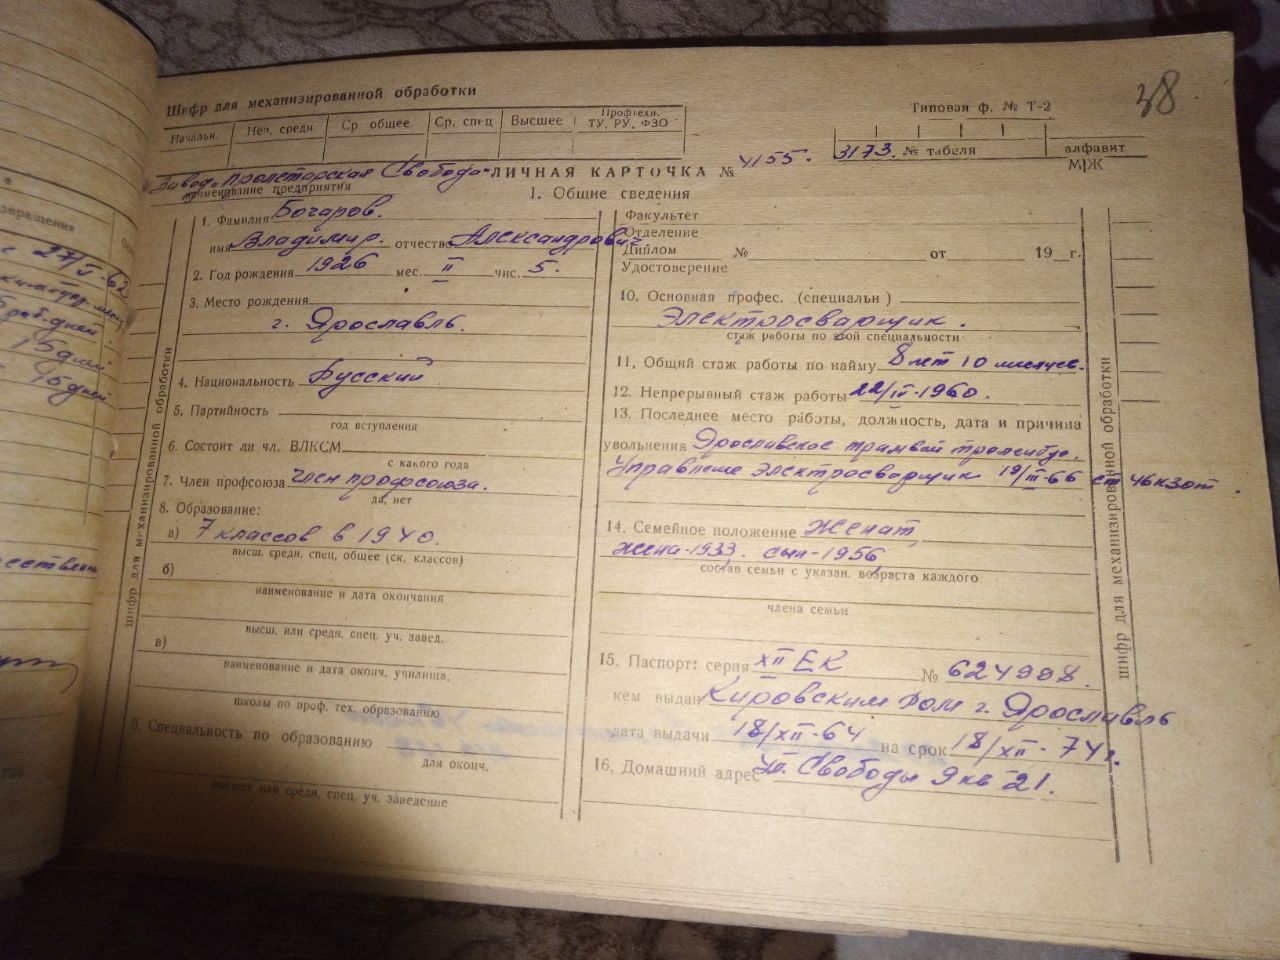 38
Шифр для механизированной обработки
Типовая ф. № Т-2
Начальн. Неп. средн Ср общее Ср. спец Высшее Профтехн. ТУ, РУ, ФЗО
3173. № табеля алфавит
М|Ж
Завод "Пролетарская Свобода" ЛИЧНАЯ КАРТОЧКА № 4155.
наименование предприятия
1. Общие сведения
1. Фамилия Бочаров.
имя Владимир. отчество Александрович
2. Год рождения 1926 мес. II чис. 5.
3. Место рождения
г. Ярославль.
4. Национальность Русский
5. Партийность
год вступления
6. Состоит ли чл. ВЛКСМ
с какого года
7. Член профсоюза член профсоюза.
да, нет
8. Образование:
а) 7 классов в 1940.
высш. средн. спец, общее (ск. классов)
б)
наименование и дата окончания
высш. или средн. спец. уч. завед.
в)
наименование и дата оконч. училища,
школы по проф. тех. образованию
9. Специальность по образованию
для оконч.
высшее или средн. спец. уч. заведение
Факультет
Отделение
Диплом № от 19 г.
Удостоверение
10. Основная профес. (специальн)
Электросварщик.
стаж работы по этой специальности
11. Общий стаж работы по найму 8 лет 10 месяцев.
12. Непрерывный стаж работы 22/IV-1960.
13. Последнее место работы, должность, дата и причина
увольнения Ярославское трамвай
Управление электросварщик 19/III-66 ст 46 кзот.
14. Семейное положение Женат,
жена-1933. сын-1956,
состав семьи с указан. возраста каждого
члена семьи
15. Паспорт: серия XII ЕК № 624998.
кем выдан Кировским Ром г. Ярославль
дата выдачи 18/XII-64 на срок 18/XII-74г.
16. Домашний адрес Ул. Свободы 9 кв 21.
шифр для механизированной обработки
шифр для механизированной обработки
звращения
27/V-62
15 дней
45 дней